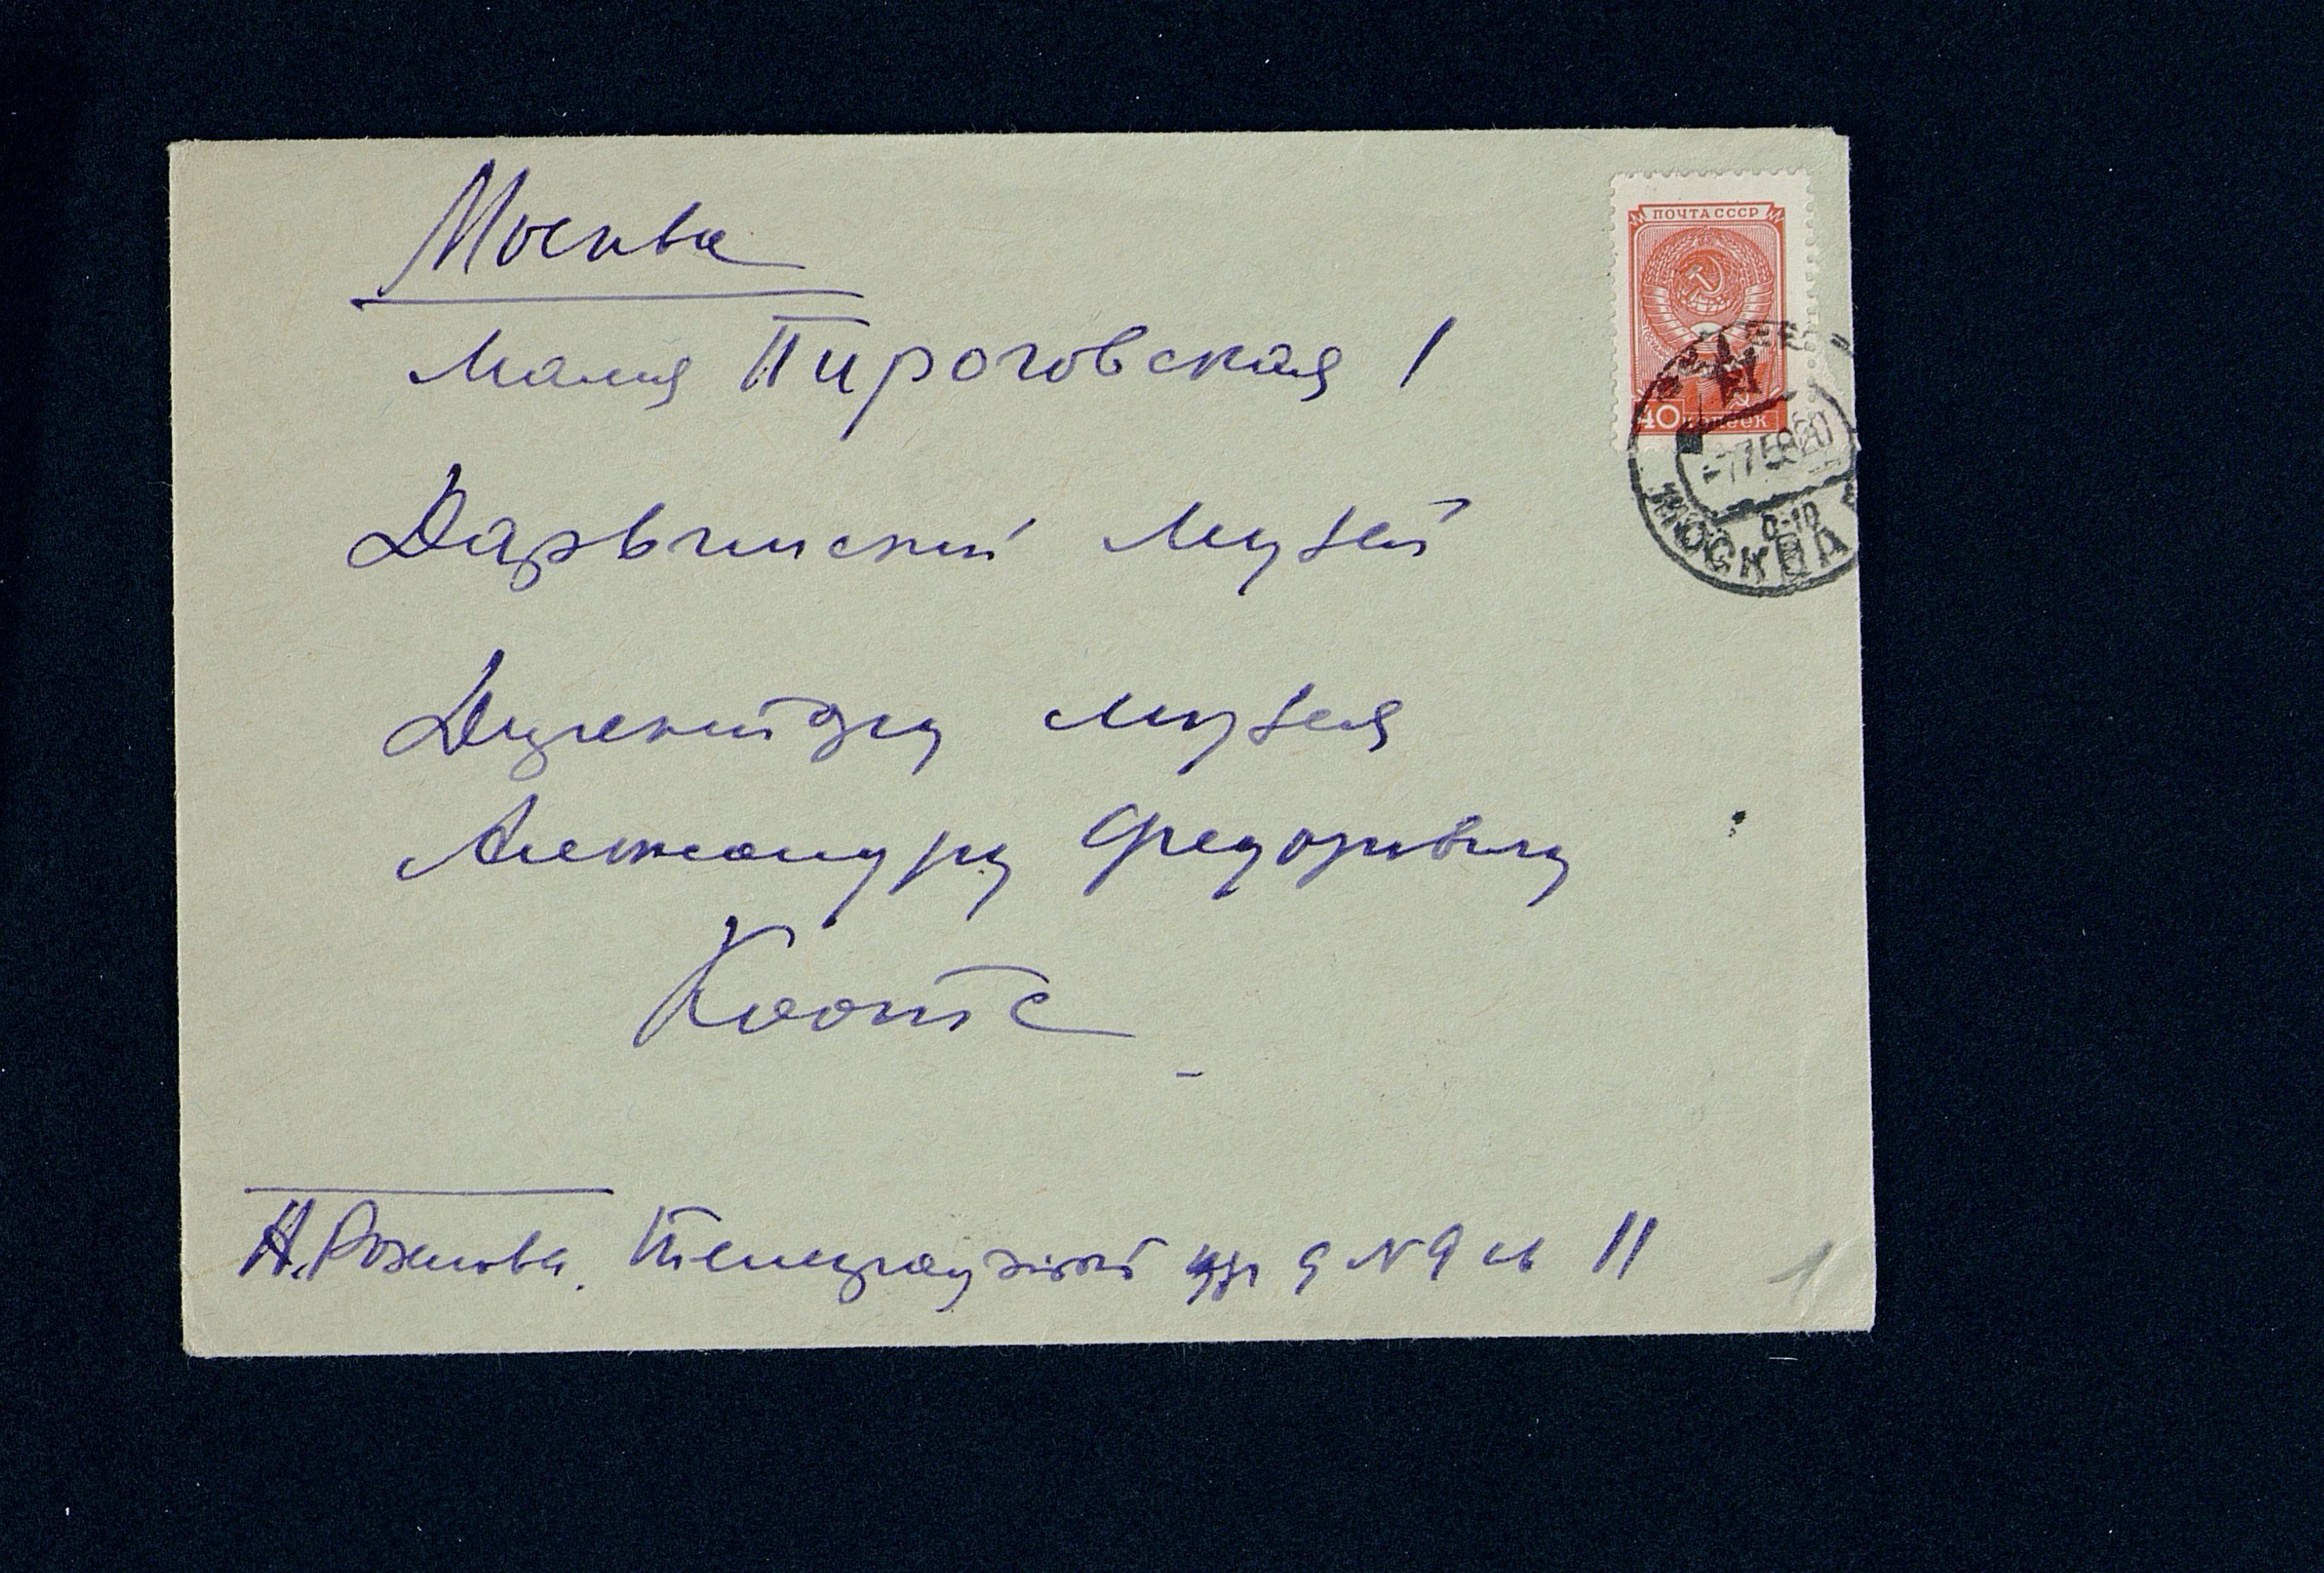 Москва
Малая Пироговская 1
Дарвинский Музей
Директору музея
Александру Федоровичу
Коотс
Н. Рожкова. пер 9 №9 кв 11
1
ПОЧТА СССР
40 копеек
-7 7 58 20
8-10
МОСКВА